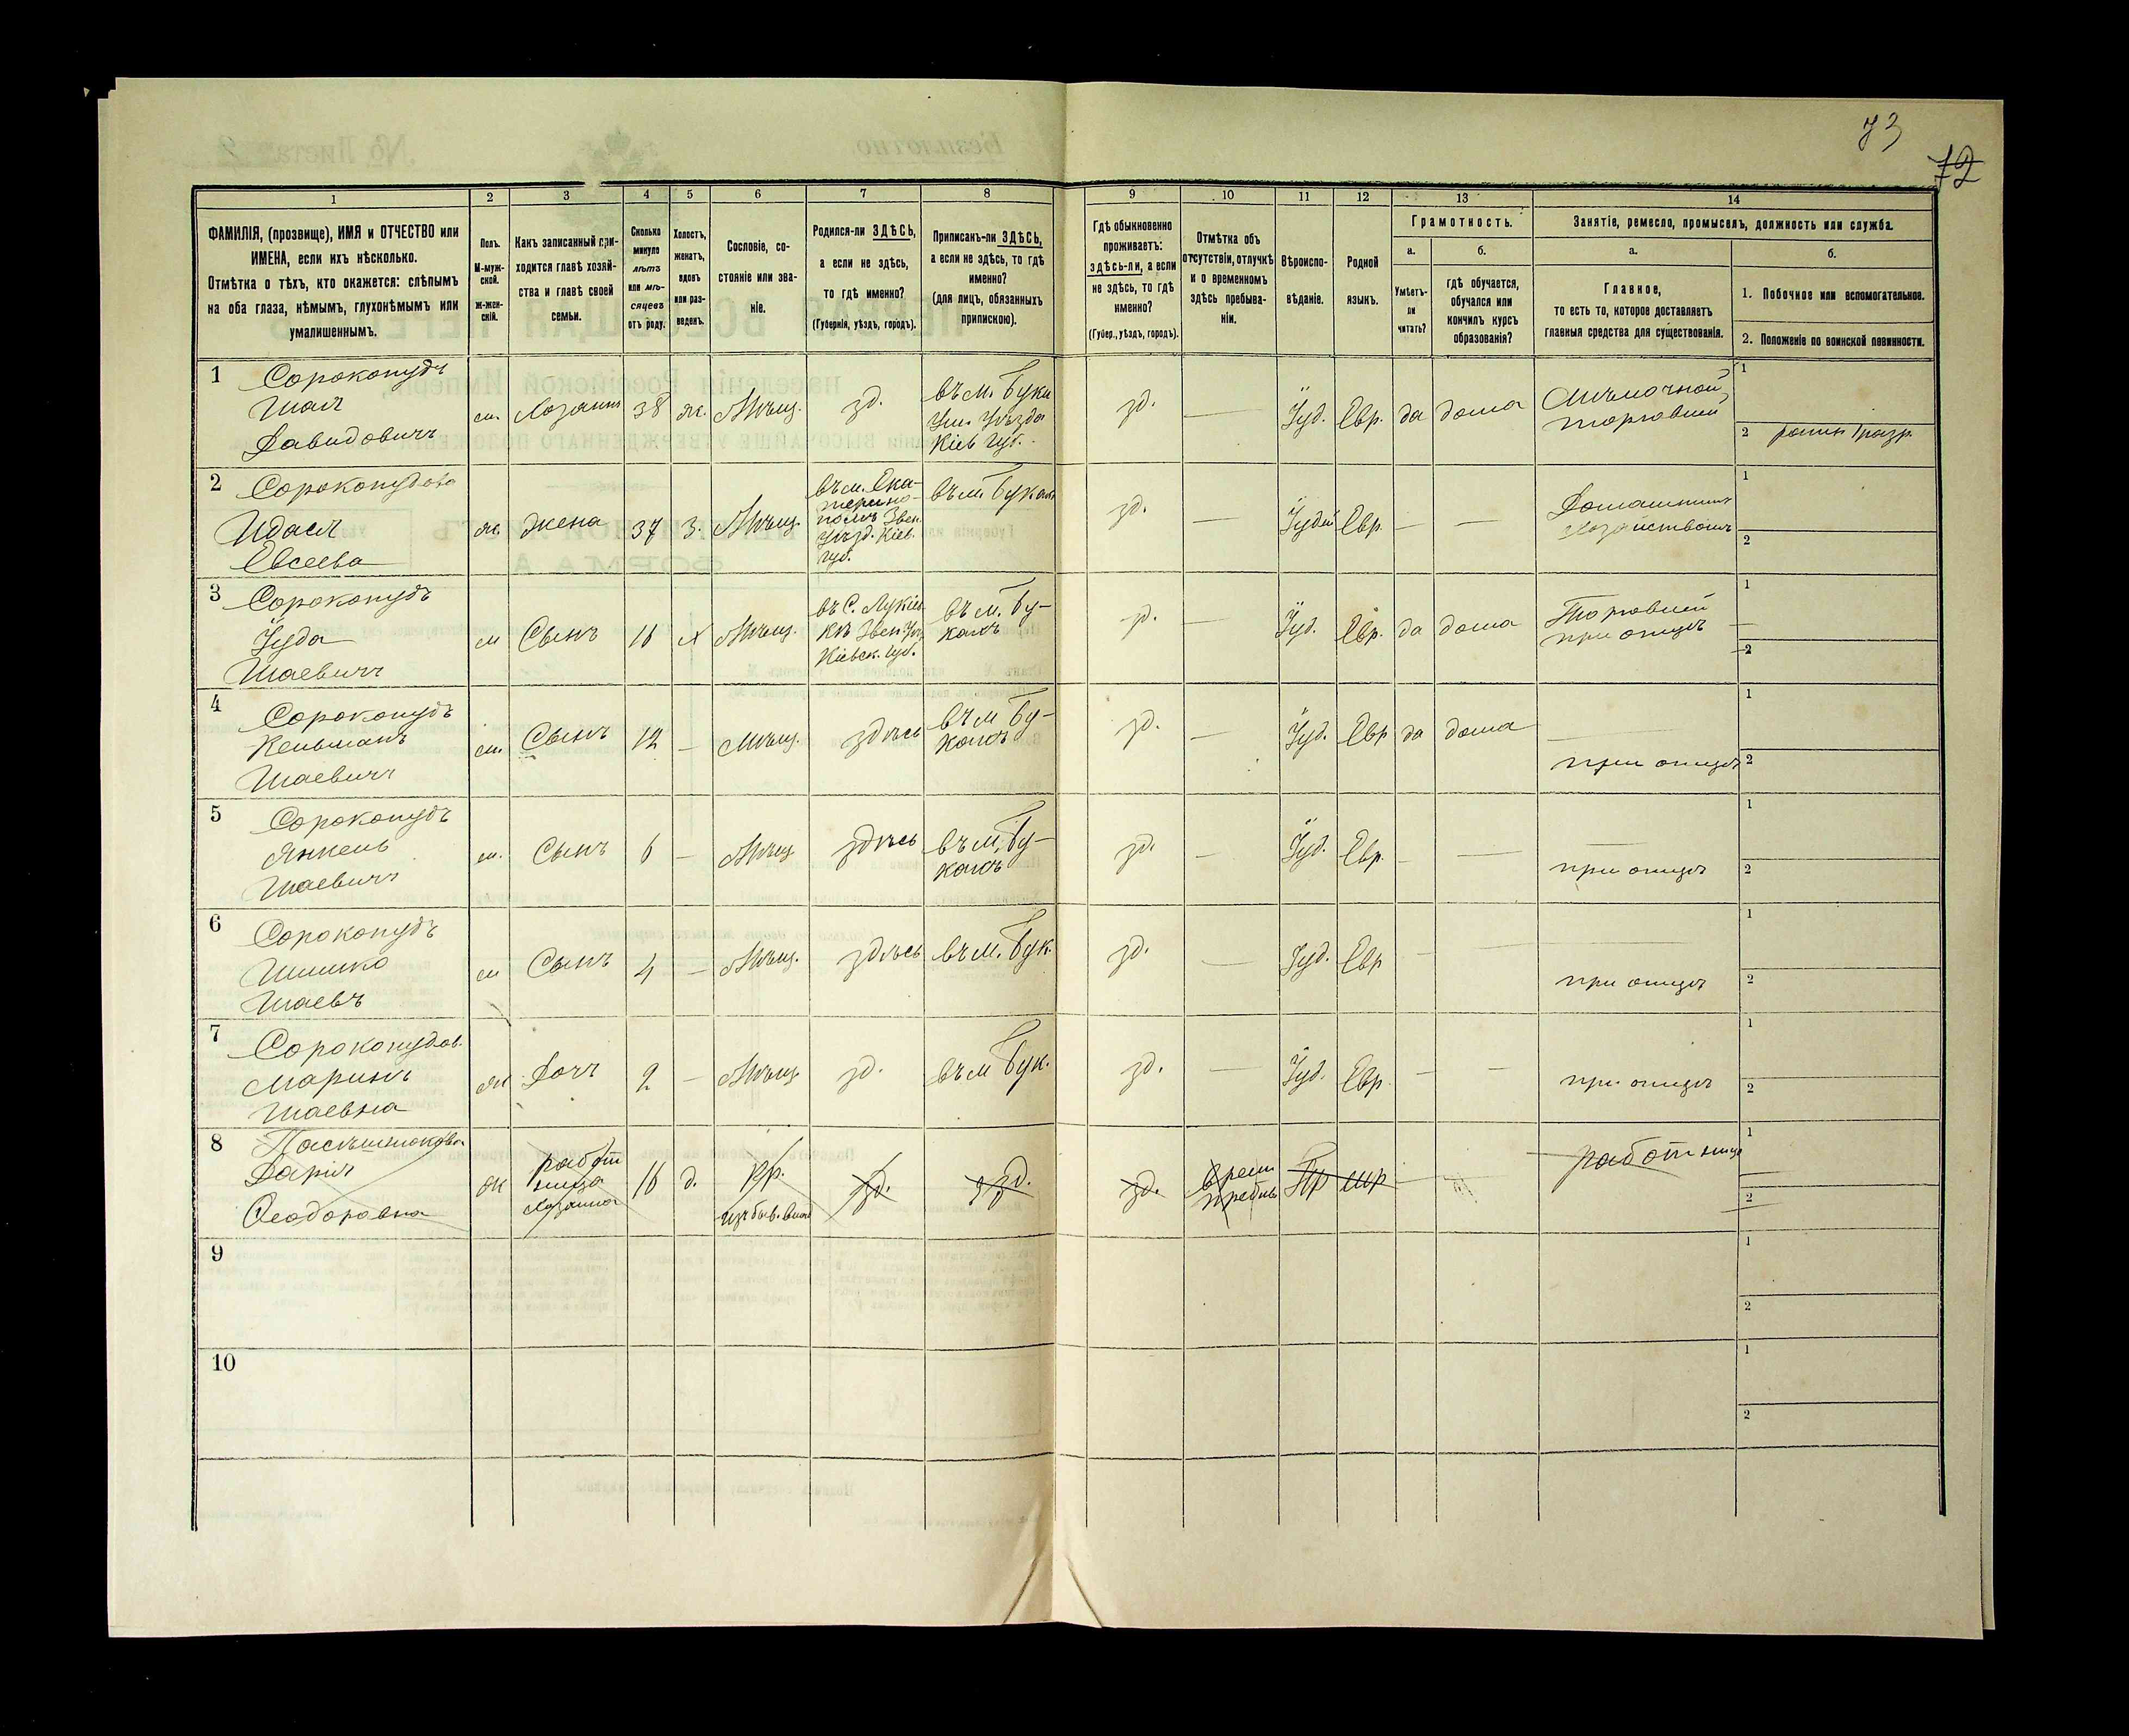 73
72
1 2 3 4 5 6 7 8 9 10 11 12 13 14
ФАМИЛІЯ, (прозвище), ИМЯ и ОТЧЕСТВО или
ИМЕНА, если ихъ нѣсколько.
Отмѣтка о тѣхъ, кто окажется: слѣпымъ
на оба глаза, нѣмымъ, глухонѣмымъ или
умалишеннымъ.
Полъ.
М-муж-
ской.
ж-жен-
скій.
Какъ записанный при-
ходится главѣ хозяй-
ства и главѣ своей
семьи.
Сколько
минуло
лѣтъ
или мѣ-
сяцевъ
отъ роду.
Холостъ,
женатъ,
вдовъ
или раз-
веденъ.
Сословіе, со-
стояніе или зва-
ніе.
Родился-ли ЗДѢСЬ,
а если не здѣсь,
то гдѣ именно?
(Губернія, уѣздъ, городъ).
Приписанъ-ли ЗДѢСЬ,
а если не здѣсь, то гдѣ
именно?
(для лицъ, обязанныхъ
припискою).
Гдѣ обыкновенно
проживаетъ:
здѣсь-ли, а если
не здѣсь, то гдѣ
именно?
(Губер., уѣздъ, городъ).
Отмѣтка объ
отсутствіи, отлучкѣ
и о временномъ
здѣсь пребыва-
ніи.
Вѣроиспо-
вѣданіе.
Родной
языкъ.
Грамотность.
а.
Умѣетъ-
ли
читать?
б.
гдѣ обучается,
обучался или
кончилъ курсъ
образованія?
Занятіе, ремесло, промыселъ, должность или служба.
а.
Главное,
то есть то, которое доставляетъ
главныя средства для существованія.
б.
1. Побочное или вспомогательное.
2. Положеніе по воинской повинности.
1 Сорокопудъ
Шая
Давидовичъ
м. Хозяинъ 38 ж. Мѣщ. зд.
въ м. Буки
Ум. Уѣзда
Кіев Губ.
зд. — Іуд. Евр. да дома
Мѣлочной
торговлей
1
2 ратн 1 разр.
2 Сорокопудова
Идася
Евсеева
ж. жена 37 З. Мѣщ.
въ м. Ека-
терино-
полѣ Звен.
Уѣзд. Кіев.
губ.
въ м. Букахъ
зд. — Іудей Евр. — —
Домашнимъ
хозяйствомъ
1
2
3 Сорокопудъ
Іуда
Шаевичъ
м Сынъ 16 Х Мѣщ.
въ С. Лукіев-
кѣ Звен Уѣз
Кіевск. Губ.
въ м. Бу-
кахъ
зд. — Іуд. Евр. да дома
Торговлей
при отцѣ
1
2
4 Сорокопудъ
Кельманъ
Шаевичъ
м. Сынъ 12 — Мѣщ. здѣсь
въ м Бу-
кахъ
зд. — Іуд. Евр да дома
при отцѣ
1
2
5 Сорокопудъ
Янкель
Шаевичъ
м. Сынъ 6 — Мѣщ здѣсь
въ м. Бу-
кахъ
зд. — Іуд. Евр. — —
при отцѣ
1
2
6 Сорокопудъ
Шлимко
Шаевъ
м Сынъ 4 — Мѣщ. здѣсь въ м. Бук.
зд. — Іуд. Евр —
при отцѣ
1
2
7 Сорокопудов.
Марьямъ
Шаевна
ж Дочь 2 — Мѣщ зд. въ м Бук.
зд. — Іуд. Евр. — —
при отцѣ
1
2
8
Дарія
Феодоровна
ж
работ
ница
хозяина
16 д. кр.
изъ быв.
зд. зд. зд.
врем
пребыв
Пр мр —
работница
1
2
9
1
2
10
1
2